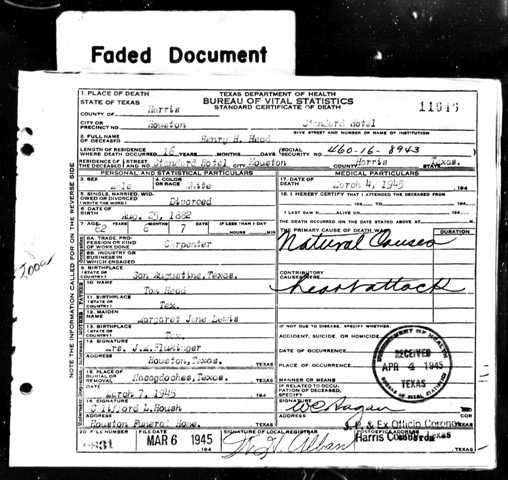 Faded Document
1. PLACE OF DEATH
STATE OF TEXAS
COUNTY OF Harris
TEXAS DEPARTMENT OF HEALTH
BUREAU OF VITAL STATISTICS
STANDARD CERTIFICATE OF DEATH
CITY OR
PRECINCT NO. Houston Standard Hotel
GIVE STREET AND NUMBER OR NAME OF INSTITUTION
2. FULL NAME
OF DECEASED Henry H. Head
LENGTH OF RESIDENCE
WHERE DEATH OCCURRED 16 YEARS MONTHS DAYS SOCIAL SECURITY NO. 460-16-8943
RESIDENCE OF THE DECEASED STREET AND NO. Standard Hotel CITY Houston COUNTY Harris STATE Texas.
PERSONAL AND STATISTICAL PARTICULARS
MEDICAL PARTICULARS
3. SEX Male
4. COLOR OR RACE White
17. DATE OF DEATH March 4, 1945 194
5. SINGLE, MARRIED, WIDOWED OR DIVORCED (WRITE THE WORD) Divorced
18. I HEREBY CERTIFY THAT I ATTENDED THE DECEASED FROM
6. DATE OF BIRTH Aug. 25, 1882
I LAST SAW H ALIVE ON 194
7. AGE 62 YEARS 6 MONTHS 7 DAYS IF LESS THAN 1 DAY HOURS MIN
THE DEATH OCCURRED ON THE DATE STATED ABOVE AT M.
8A. TRADE, PROFESSION OR KIND OF WORK DONE Carpenter
THE PRIMARY CAUSE OF DEATH WAS: DURATION
Natural Causes
8B. INDUSTRY OR BUSINESS IN WHICH ENGAGED
9. BIRTHPLACE (STATE OR COUNTRY) San Augustine, Texas.
CONTRIBUTORY CAUSES WERE
heart attack
10. NAME Tom Head
11. BIRTHPLACE (STATE OR COUNTRY) Tex.
12. MAIDEN NAME Margaret Jane Lewis
13. BIRTHPLACE (STATE OR COUNTRY) Tex.
IF NOT DUE TO DISEASE, SPECIFY WHETHER:
ACCIDENT, SUICIDE, OR HOMICIDE
14. SIGNATURE Mrs. J.M.
ADDRESS Houston, Texas. TEXAS
DATE OF OCCURRENCE
PLACE OF OCCURRENCE
15. PLACE OF BURIAL OR REMOVAL Nacogdoches, Texas. TEXAS
DATE March 7, 1945 194
MANNER OR MEANS
IF RELATED TO OCCUPATION OF DECEASED, SPECIFY
DEPARTMENT OF HEALTH
RECEIVED
APR 4 1945
TEXAS
16. SIGNATURE Clifford L. Roush
ADDRESS Houston Funeral Home. TEXAS
SIGNATURE
ADDRESS J.P. & Ex Officio Coroner
Harris County, Texas
20. FILE NUMBER
FILE DATE MAR 6 1945 194
SIGNATURE OF LOCAL REGISTRAR
POSTOFFICE ADDRESS
NOTE THE INFORMATION CALLED FOR ON THE REVERSE SIDE